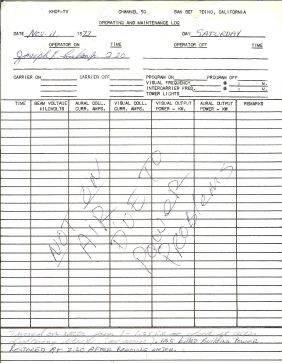 KHOF-TV CHANNEL 30 SAN BERNARDINO, CALIFORNIA
OPERATING AND MAINTENANCE LOG
DATE Nov. 11, 1977 DAY SATURDAY
OPERATOR ON TIME OPERATOR OFF TIME
Joseph 2:20
CARRIER ON CARRIER OFF PROGRAM ON PROGRAM OFF
VISUAL FREQUENCY @ M.
INTERCARRIER FREQ. @ M.
TOWER LIGHTS
TIME BEAM VOLTAGE AURAL COLL. VISUAL COLL. VISUAL OUTPUT AURAL OUTPUT REMARKS
KILOVOLTS CURR. AMPS. CURR. AMPS. POWER - KW. POWER - KW.
NOT ON
AIR
DUE TO
POWER
PROBLEMS
KILLED BUILDING POWER
RESTORED AT 2:50 AFTER READING METER.